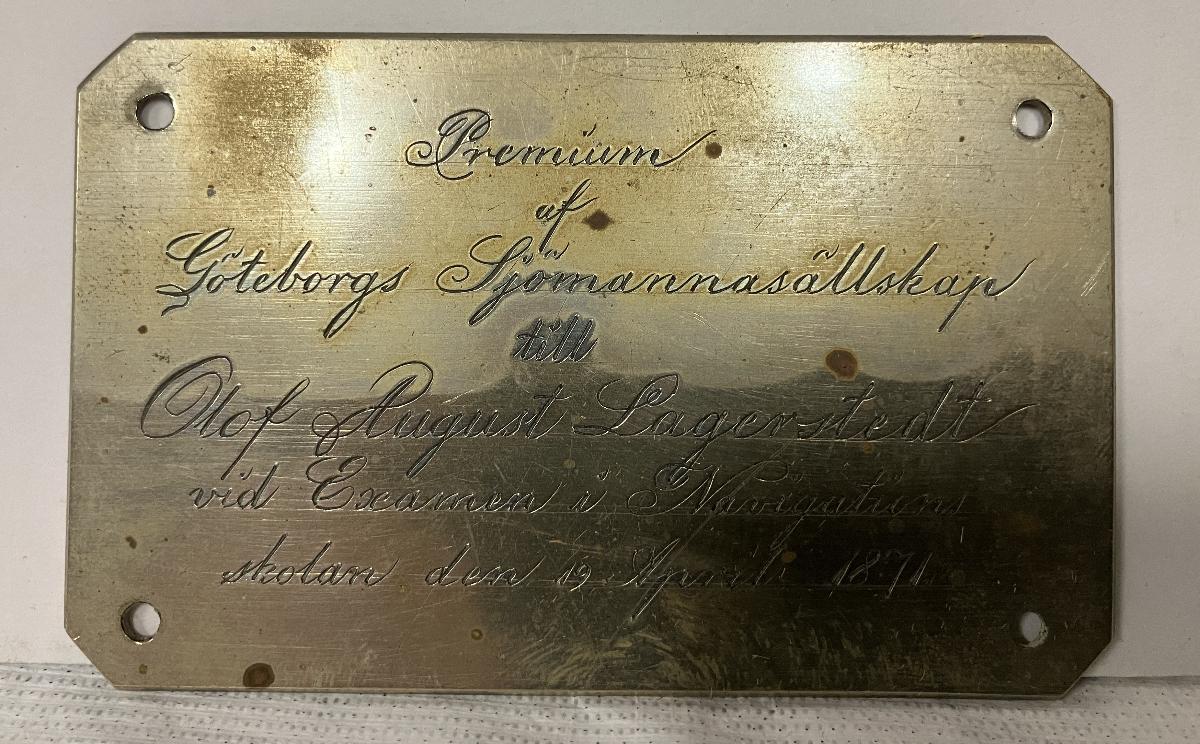 Premium
af
Göteborgs Sjömannasällskap
till
Olof August Lagerstedt
vid Examen i Navigations
skolan den 19 April 1871